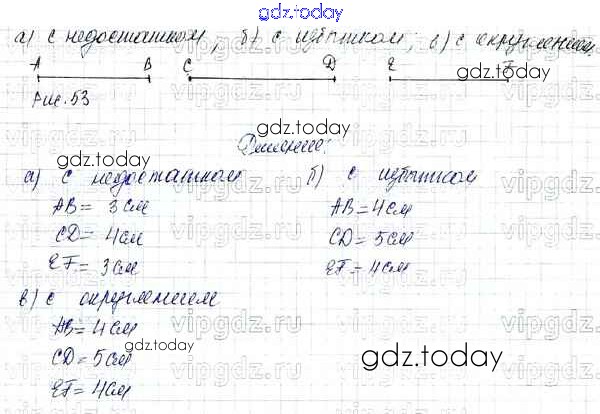 gdz.today
а) с недостатком; б) с избытком; в) с округлением.
A B C D E F
gdz.today
Рис. 53
gdz.today
Решение:
а) с недостатком б) с избытком
AB = 3 см AB = 4 см
CD = 4 см CD = 5 см
EF = 3 см EF = 4 см
в) с округлением
AB = 4 см
CD = 5 см
EF = 4 см
gdz.today
vipgdz.ru